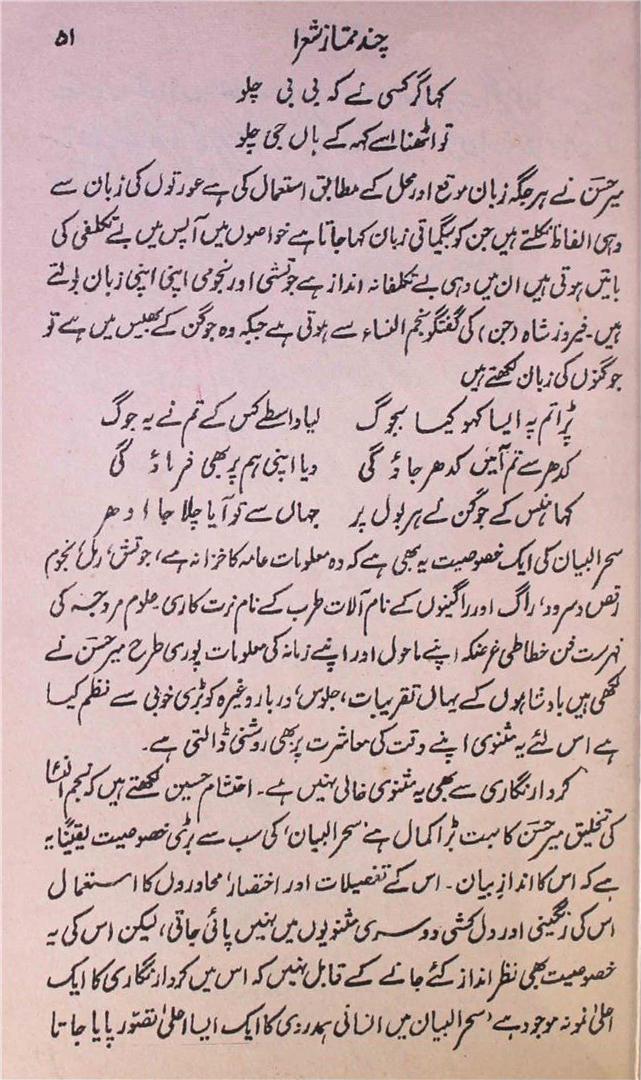 چند ممتاز شعرا ۵۱
کہا گر کسی نے کہ بی بی چلو
تو اٹھنا اسے کہہ کے ہاں جی چلو
میر حسن نے ہر جگہ زبان موقع اور محل کے مطابق استعمال کی ہے عورتوں کی زبان سے
وہی الفاظ نکلتے ہیں جن کو بیگماتی زبان کہا جاتا ہے خواصوں میں آپس میں بے تکلفی کی
باتیں ہوتی ہیں ان میں وہی بے تکلفانہ انداز ہے جوتشی اور نجومی اپنی اپنی زبان بولتے
ہیں۔ فیروز شاہ (جن) کی گفتگو نجم النساء سے ہوتی ہے جبکہ وہ جوگن کے بھیس میں ہے تو
جوگنوں کی زبان لکھتے ہیں
پڑا تم پہ ایسا کہو کیسا بجوگ لیا واسطے کس کے تم نے یہ جوگ
کدھر سے تم آئیں کدھر جاؤ گی دیا اپنی ہم پر بھی فرماؤ گی
کہا ہنس کے جوگن نے ہر بول پر جہاں سے تو آیا چلا جا ادھر
سحر البیان کی ایک خصوصیت یہ بھی ہے کہ وہ معلومات عامہ کا خزانہ ہے، جوتش، رمل، نجوم
رقص و سرود، راگ اور راگنیوں کے نام آلات طرب کے نام نرت کاری علوم مروجہ کی
فہرست فن خطاطی غرضکہ اپنے ماحول اور اپنے زمانہ کی معلومات پوری طرح میر حسن نے
لکھی ہیں بادشاہوں کے یہاں تقریبات، جلوس، دربار وغیرہ کو بڑی خوبی سے نظم کیا
ہے اس لئے یہ مثنوی اپنے وقت کی معاشرت پر بھی روشنی ڈالتی ہے۔
کردار نگاری سے بھی یہ مثنوی خالی نہیں ہے۔ احتشام حسین لکھتے ہیں کہ نجم النساء
کی تخلیق میر حسن کا بہت بڑا کمال ہے 'سحر البیان' کی سب سے بڑی خصوصیت یقینًا یہ
ہے کہ اس کا انداز بیان۔ اس کے تفصیلات اور اختصار، محاوروں کا استعمال
اس کی رنگینی اور دل کشی دوسری مثنویوں میں نہیں پائی جاتی، لیکن اس کی یہ
خصوصیت بھی نظر انداز کئے جانے کے قابل نہیں کہ اس میں کردار نگاری کا ایک
اعلیٰ نمونہ موجود ہے 'سحر البیان میں انسانی ہمدردی کا ایک ایسا اعلیٰ تصور پایا جاتا